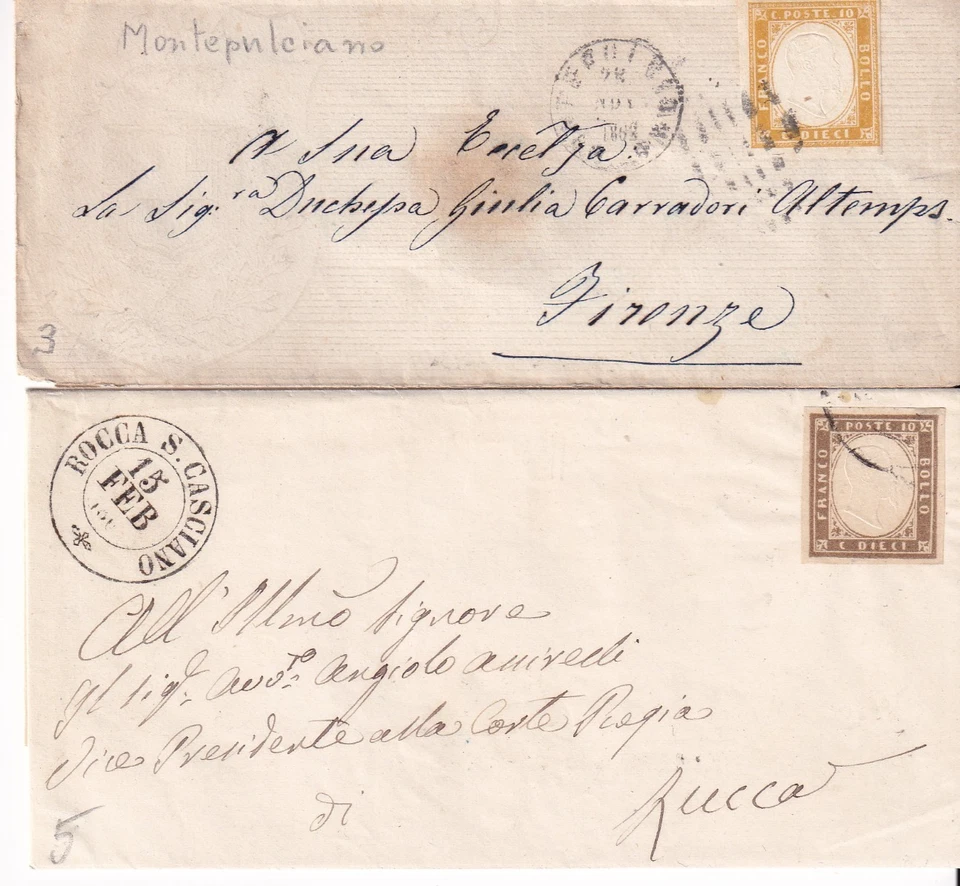 Montepulciano
C. POSTE 10
FRANCO
BOLLO
C. DIECI
28
NOV
A Sua Eccelza.
La Sig.ra Duchessa Giulia Carradori Altemps.
Firenze
3
ROCCA S. CASCIANO
15
FEB
C. POSTE 10
FRANCO
BOLLO
C. DIECI
All' Illmo Signore
Il Sig.r Avv.to Angiolo
Vice Presidente alla Corte Regia
di Lucca
5